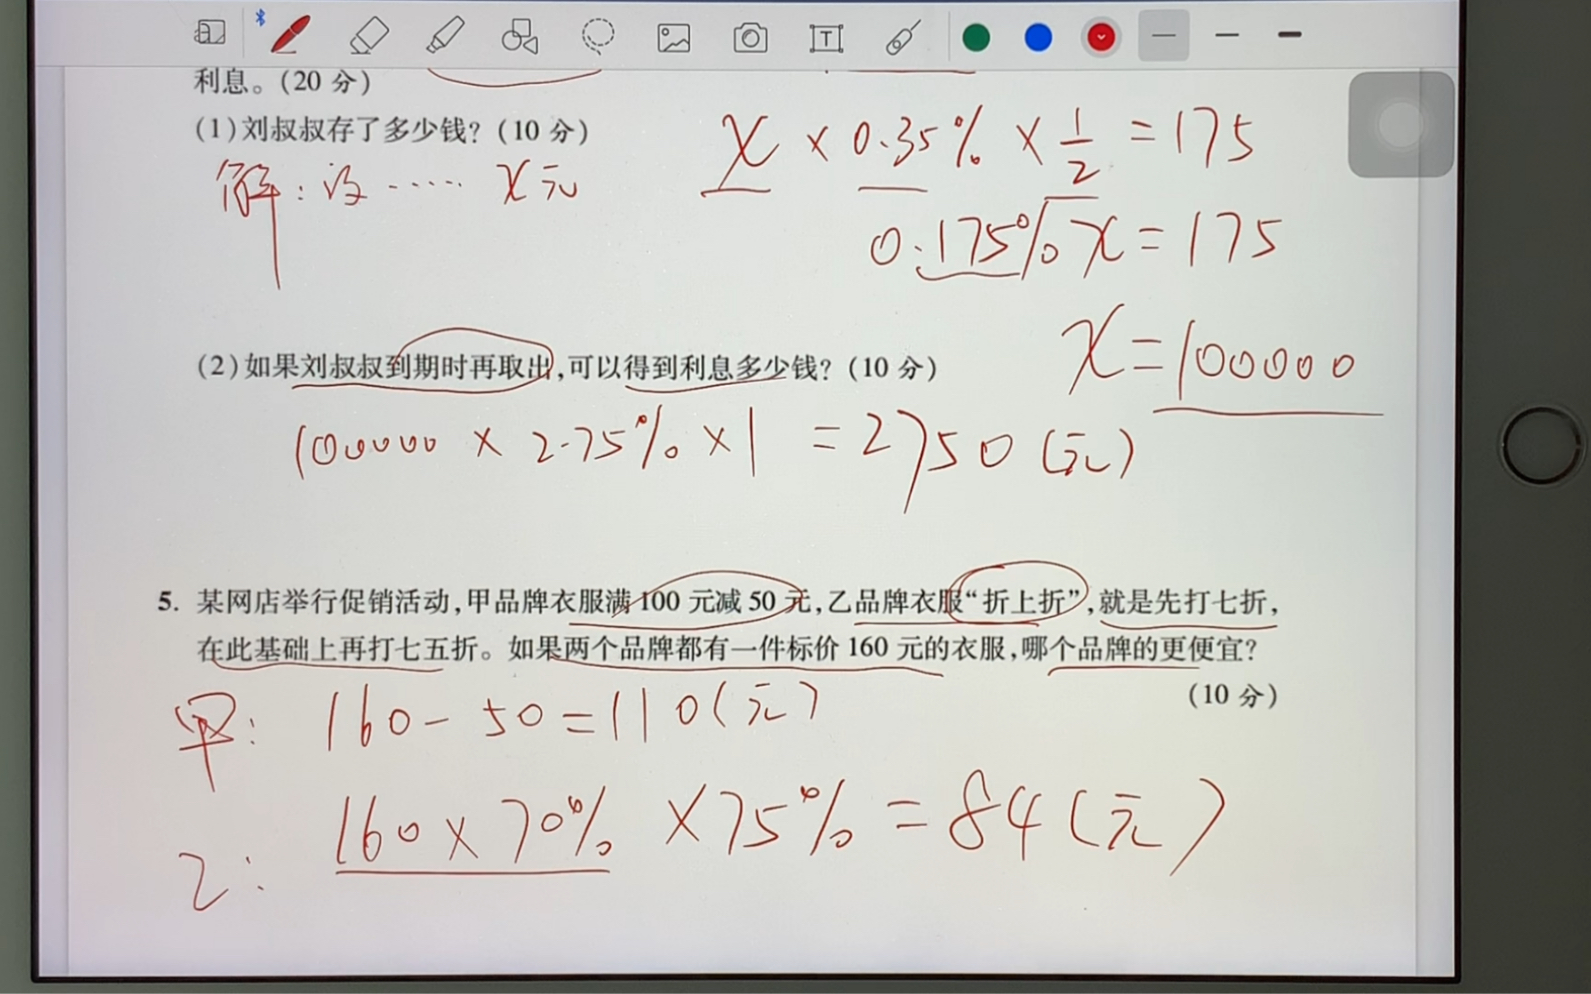 利息。(20 分)
(1)刘叔叔存了多少钱?(10 分)
x × 0.35% × 1/2 = 175
解:设…… x元
0.175%x = 175
x = 100000
(2)如果刘叔叔到期时再取出,可以得到利息多少钱?(10 分)
100000 × 2.75% × 1 = 2750(元)
5. 某网店举行促销活动,甲品牌衣服满 100 元减 50 元,乙品牌衣服“折上折”,就是先打七折,
在此基础上再打七五折。如果两个品牌都有一件标价 160 元的衣服,哪个品牌的更便宜?
(10 分)
甲: 160-50=110(元)
乙: 160×70% ×75% =84(元)